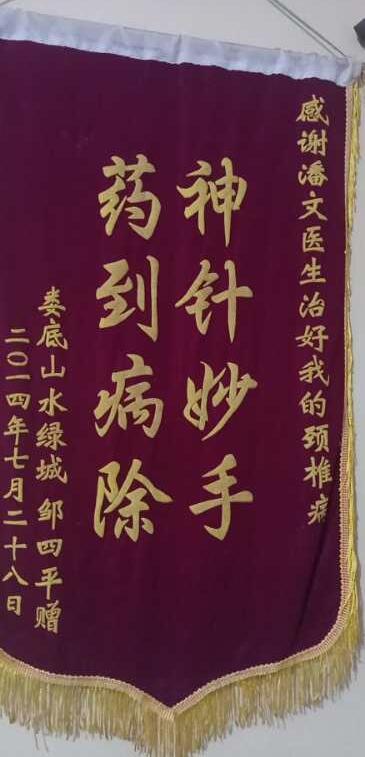 感谢潘文医生治好我的颈椎病
神针妙手
药到病除
娄底山水绿城 邹四平赠
二〇一四年七月二十八日